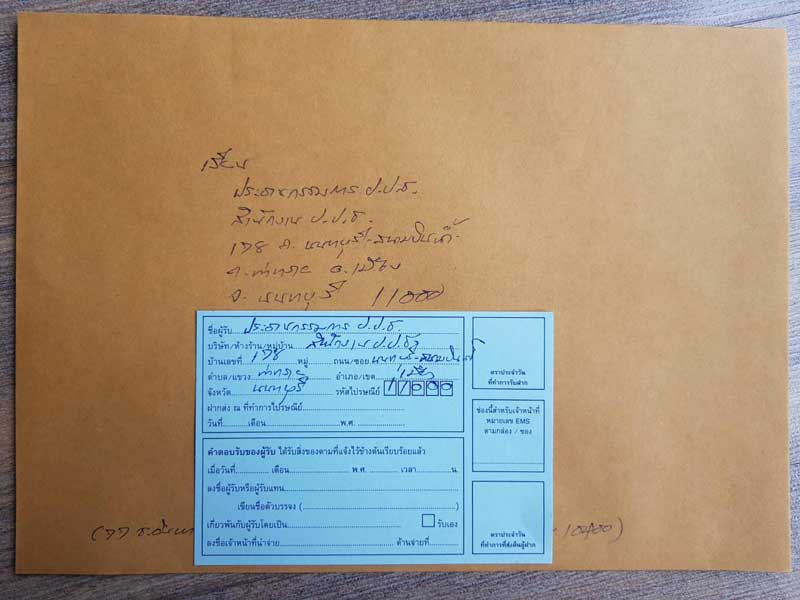 เรียน
ประธานกรรมการ ป.ป.ช.
สำนักงาน ป.ป.ช.
178 ถ. นนทบุรี-สนามบินน้ำ
ต. ท่าทราย อ. เมือง
จ. นนทบุรี 11000
ชื่อผู้รับ ประธานกรรมการ ป.ป.ช.
บริษัท/ห้างร้าน/หมู่บ้าน สำนักงาน ป.ป.ช.
บ้านเลขที่ 178 หมู่ ถนน/ซอย นนทบุรี-สนามบินน้ำ
ตำบล/แขวง ท่าทราย อำเภอ/เขต เมือง
จังหวัด นนทบุรี รหัสไปรษณีย์ 11000
ฝากส่ง ณ ที่ทำการไปรษณีย์
วันที่ เดือน พ.ศ.
ตราประจำวัน
ที่ทำการรับฝาก
ช่องนี้สำหรับเจ้าหน้าที่
หมายเลข EMS
ตามกล่อง / ซอง
คำตอบรับของผู้รับ ได้รับสิ่งของตามที่แจ้งไว้ข้างต้นเรียบร้อยแล้ว
เมื่อวันที่ เดือน พ.ศ. เวลา น.
ลงชื่อผู้รับหรือผู้รับแทน
เขียนชื่อตัวบรรจง ( )
เกี่ยวพันกับผู้รับโดยเป็น รับเอง
ลงชื่อเจ้าหน้าที่นำจ่าย ด้านจ่ายที่
ตราประจำวัน
ที่ทำการที่ส่งคืนผู้ฝาก
(77 10400)